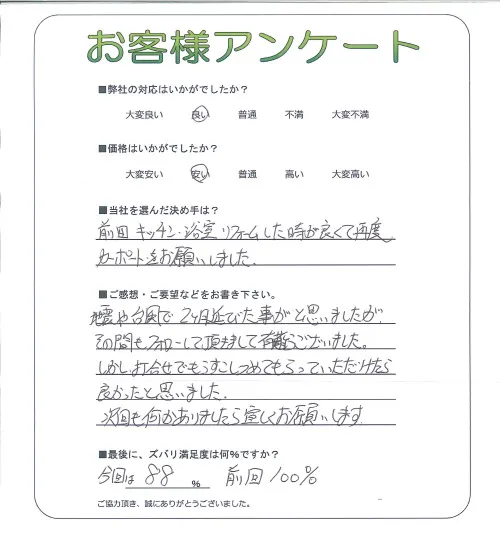 お客様アンケート
■弊社の対応はいかがでしたか？
大変良い 良い 普通 不満 大変不満
■価格はいかがでしたか？
大変安い 安い 普通 高い 大変高い
■当社を選んだ決め手は？
前回キッチン・浴室リフォームした時が良くて再度
カーポートをお願いしました.
■ご感想・ご要望などをお書き下さい。
地震や台風で2ヶ月延びた事がと思いましたが.
その間もフォローして頂きまして有難うございました。
しかし打合せでもう少しつめてもらっていただけたら
良かったと思いました.
次回も何かありましたら宜しくお願いします
■最後に、ズバリ満足度は何%ですか？
今回は 88 % 前回 100%
ご協力頂き、誠にありがとうございました。